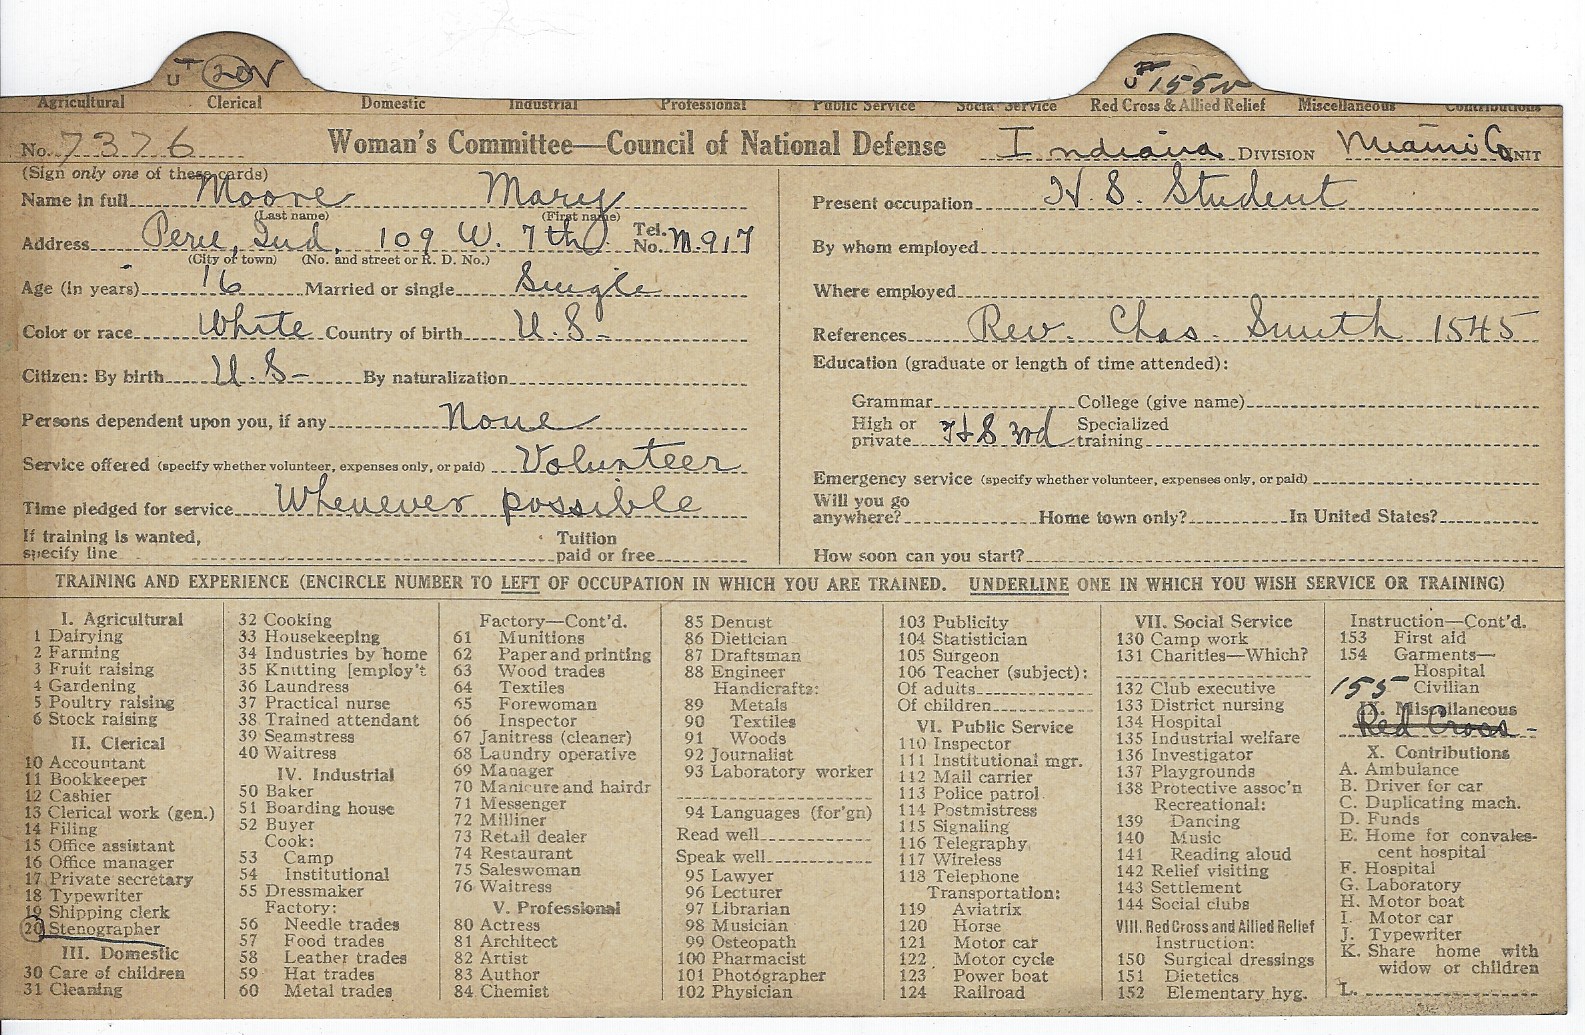 UT 20V
U 155V
Agricultural Clerical Domestic Industrial Professional Public Service Social Service Red Cross & Allied Relief Miscellaneous Contributions
No. 7376 Woman's Committee—Council of National Defense Indiana DIVISION Miami Co UNIT
(Sign only one of these cards)
Name in full Moore Mary
(Last name) (First name)
Address Peru, Ind. 109 W. 7th Tel. No. M-917
(City or town) (No. and street or R. D. No.)
Age (in years) 16 Married or single Single
Color or race White Country of birth U.S-
Citizen: By birth U S- By naturalization
Persons dependent upon you, if any None
Service offered (specify whether volunteer, expenses only, or paid) Volunteer
Time pledged for service Whenever possible
If training is wanted,
specify line
Tuition
paid or free
Present occupation H. S. Student
By whom employed
Where employed
References Rev. Chas. Smith 1545
Education (graduate or length of time attended):
Grammar College (give name)
High or
private H S 3rd
Specialized
training
Emergency service (specify whether volunteer, expenses only, or paid)
Will you go
anywhere? Home town only? In United States?
How soon can you start?
TRAINING AND EXPERIENCE (ENCIRCLE NUMBER TO LEFT OF OCCUPATION IN WHICH YOU ARE TRAINED. UNDERLINE ONE IN WHICH YOU WISH SERVICE OR TRAINING)
I. Agricultural
1 Dairying
2 Farming
3 Fruit raising
4 Gardening
5 Poultry raising
6 Stock raising
II. Clerical
10 Accountant
11 Bookkeeper
12 Cashier
13 Clerical work (gen.)
14 Filing
15 Office assistant
16 Office manager
17 Private secretary
18 Typewriter
19 Shipping clerk
20 Stenographer
III. Domestic
30 Care of children
31 Cleaning
32 Cooking
33 Housekeeping
34 Industries by home
35 Knitting [employ't
36 Laundress
37 Practical nurse
38 Trained attendant
39 Seamstress
40 Waitress
IV. Industrial
50 Baker
51 Boarding house
52 Buyer
Cook:
53 Camp
54 Institutional
55 Dressmaker
Factory:
56 Needle trades
57 Food trades
58 Leather trades
59 Hat trades
60 Metal trades
Factory—Cont'd.
61 Munitions
62 Paper and printing
63 Wood trades
64 Textiles
65 Forewoman
66 Inspector
67 Janitress (cleaner)
68 Laundry operative
69 Manager
70 Manicure and hairdr
71 Messenger
72 Milliner
73 Retail dealer
74 Restaurant
75 Saleswoman
76 Waitress
V. Professional
80 Actress
81 Architect
82 Artist
83 Author
84 Chemist
85 Dentist
86 Dietician
87 Draftsman
88 Engineer
Handicrafts:
89 Metals
90 Textiles
91 Woods
92 Journalist
93 Laboratory worker
94 Languages (for'gn)
Read well
Speak well
95 Lawyer
96 Lecturer
97 Librarian
98 Musician
99 Osteopath
100 Pharmacist
101 Photographer
102 Physician
103 Publicity
104 Statistician
105 Surgeon
106 Teacher (subject):
Of adults
Of children
VI. Public Service
110 Inspector
111 Institutional mgr.
112 Mail carrier
113 Police patrol
114 Postmistress
115 Signaling
116 Telegraphy
117 Wireless
118 Telephone
Transportation:
119 Aviatrix
120 Horse
121 Motor car
122 Motor cycle
123 Power boat
124 Railroad
VII. Social Service
130 Camp work
131 Charities—Which?
132 Club executive
133 District nursing
134 Hospital
135 Industrial welfare
136 Investigator
137 Playgrounds
138 Protective assoc'n
Recreational:
139 Dancing
140 Music
141 Reading aloud
142 Relief visiting
143 Settlement
144 Social clubs
VIII. Red Cross and Allied Relief
Instruction:
150 Surgical dressings
151 Dietetics
152 Elementary hyg.
Instruction—Cont'd.
153 First aid
154 Garments—
Hospital
155 Civilian
IX. Miscellaneous
Red Cross -
X. Contributions
A. Ambulance
B. Driver for car
C. Duplicating mach.
D. Funds
E. Home for convales-
cent hospital
F. Hospital
G. Laboratory
H. Motor boat
I. Motor car
J. Typewriter
K. Share home with
widow or children
L.